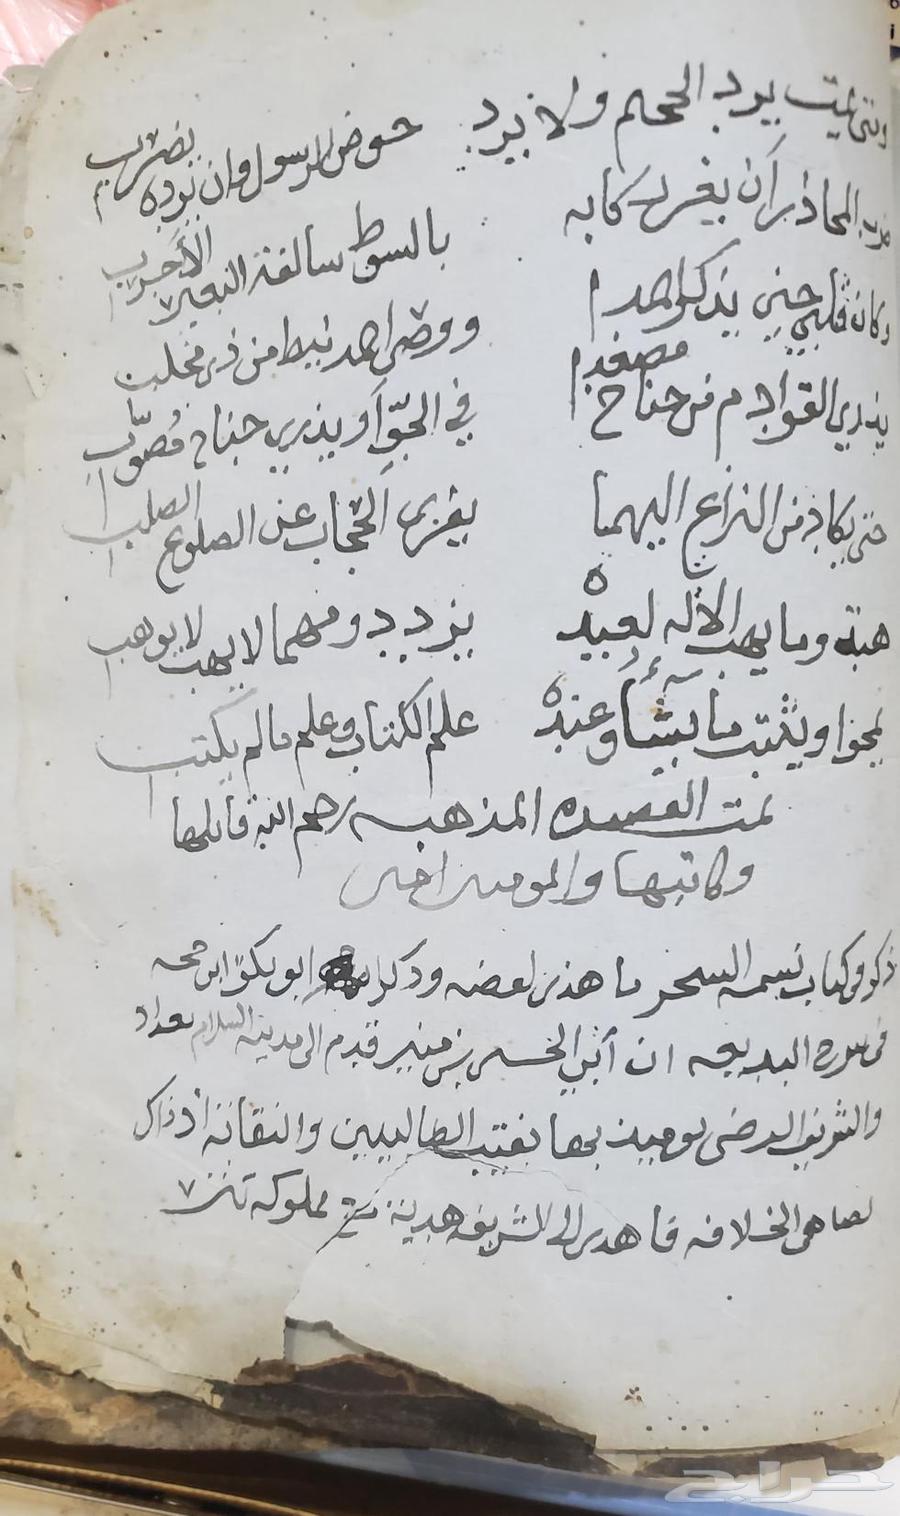 ومتى يمت يرد الجحيم ولا يرد حوض الرسول وان يرده يضرب
ضرب المحاذر أن يغر ركابه بالسوط سالفة البعير الأجرب
وكان قلبي حين يذكر احمدا ووصي احمد نيط من ذي مخلب
يذري القوادم من جناح مصعدا في الجوّ أو يذري جناح مُصوّب
حتى يكاد من النزاع اليهما يفرى الحجاب عن الضلوع الصلب
هبة وما يهب الآله لعبده يزدد ومهما لا يهب لا يوهب
يمحوا ويثبت ما يشأ وعنده علم الكتاب وعلم مالم يكتب
تمت القصيده المذهبه رحم الله قايلها
وكاتبها والمومنين امين
ذكر في كتاب نسمه السحر ما هذا لفضه وذكر ابو بكر ابن حجه
في البديعيه ان أبي الحسن بن منير قدم الى مدينه السلام بغداد
والشريف الرضى يوميذ بها نقيب الطالبيين والنقابة أذ ذاك
تضاهى الخلافه فاهدى الى الشريف هدية مع مملوكه تتر
حراج